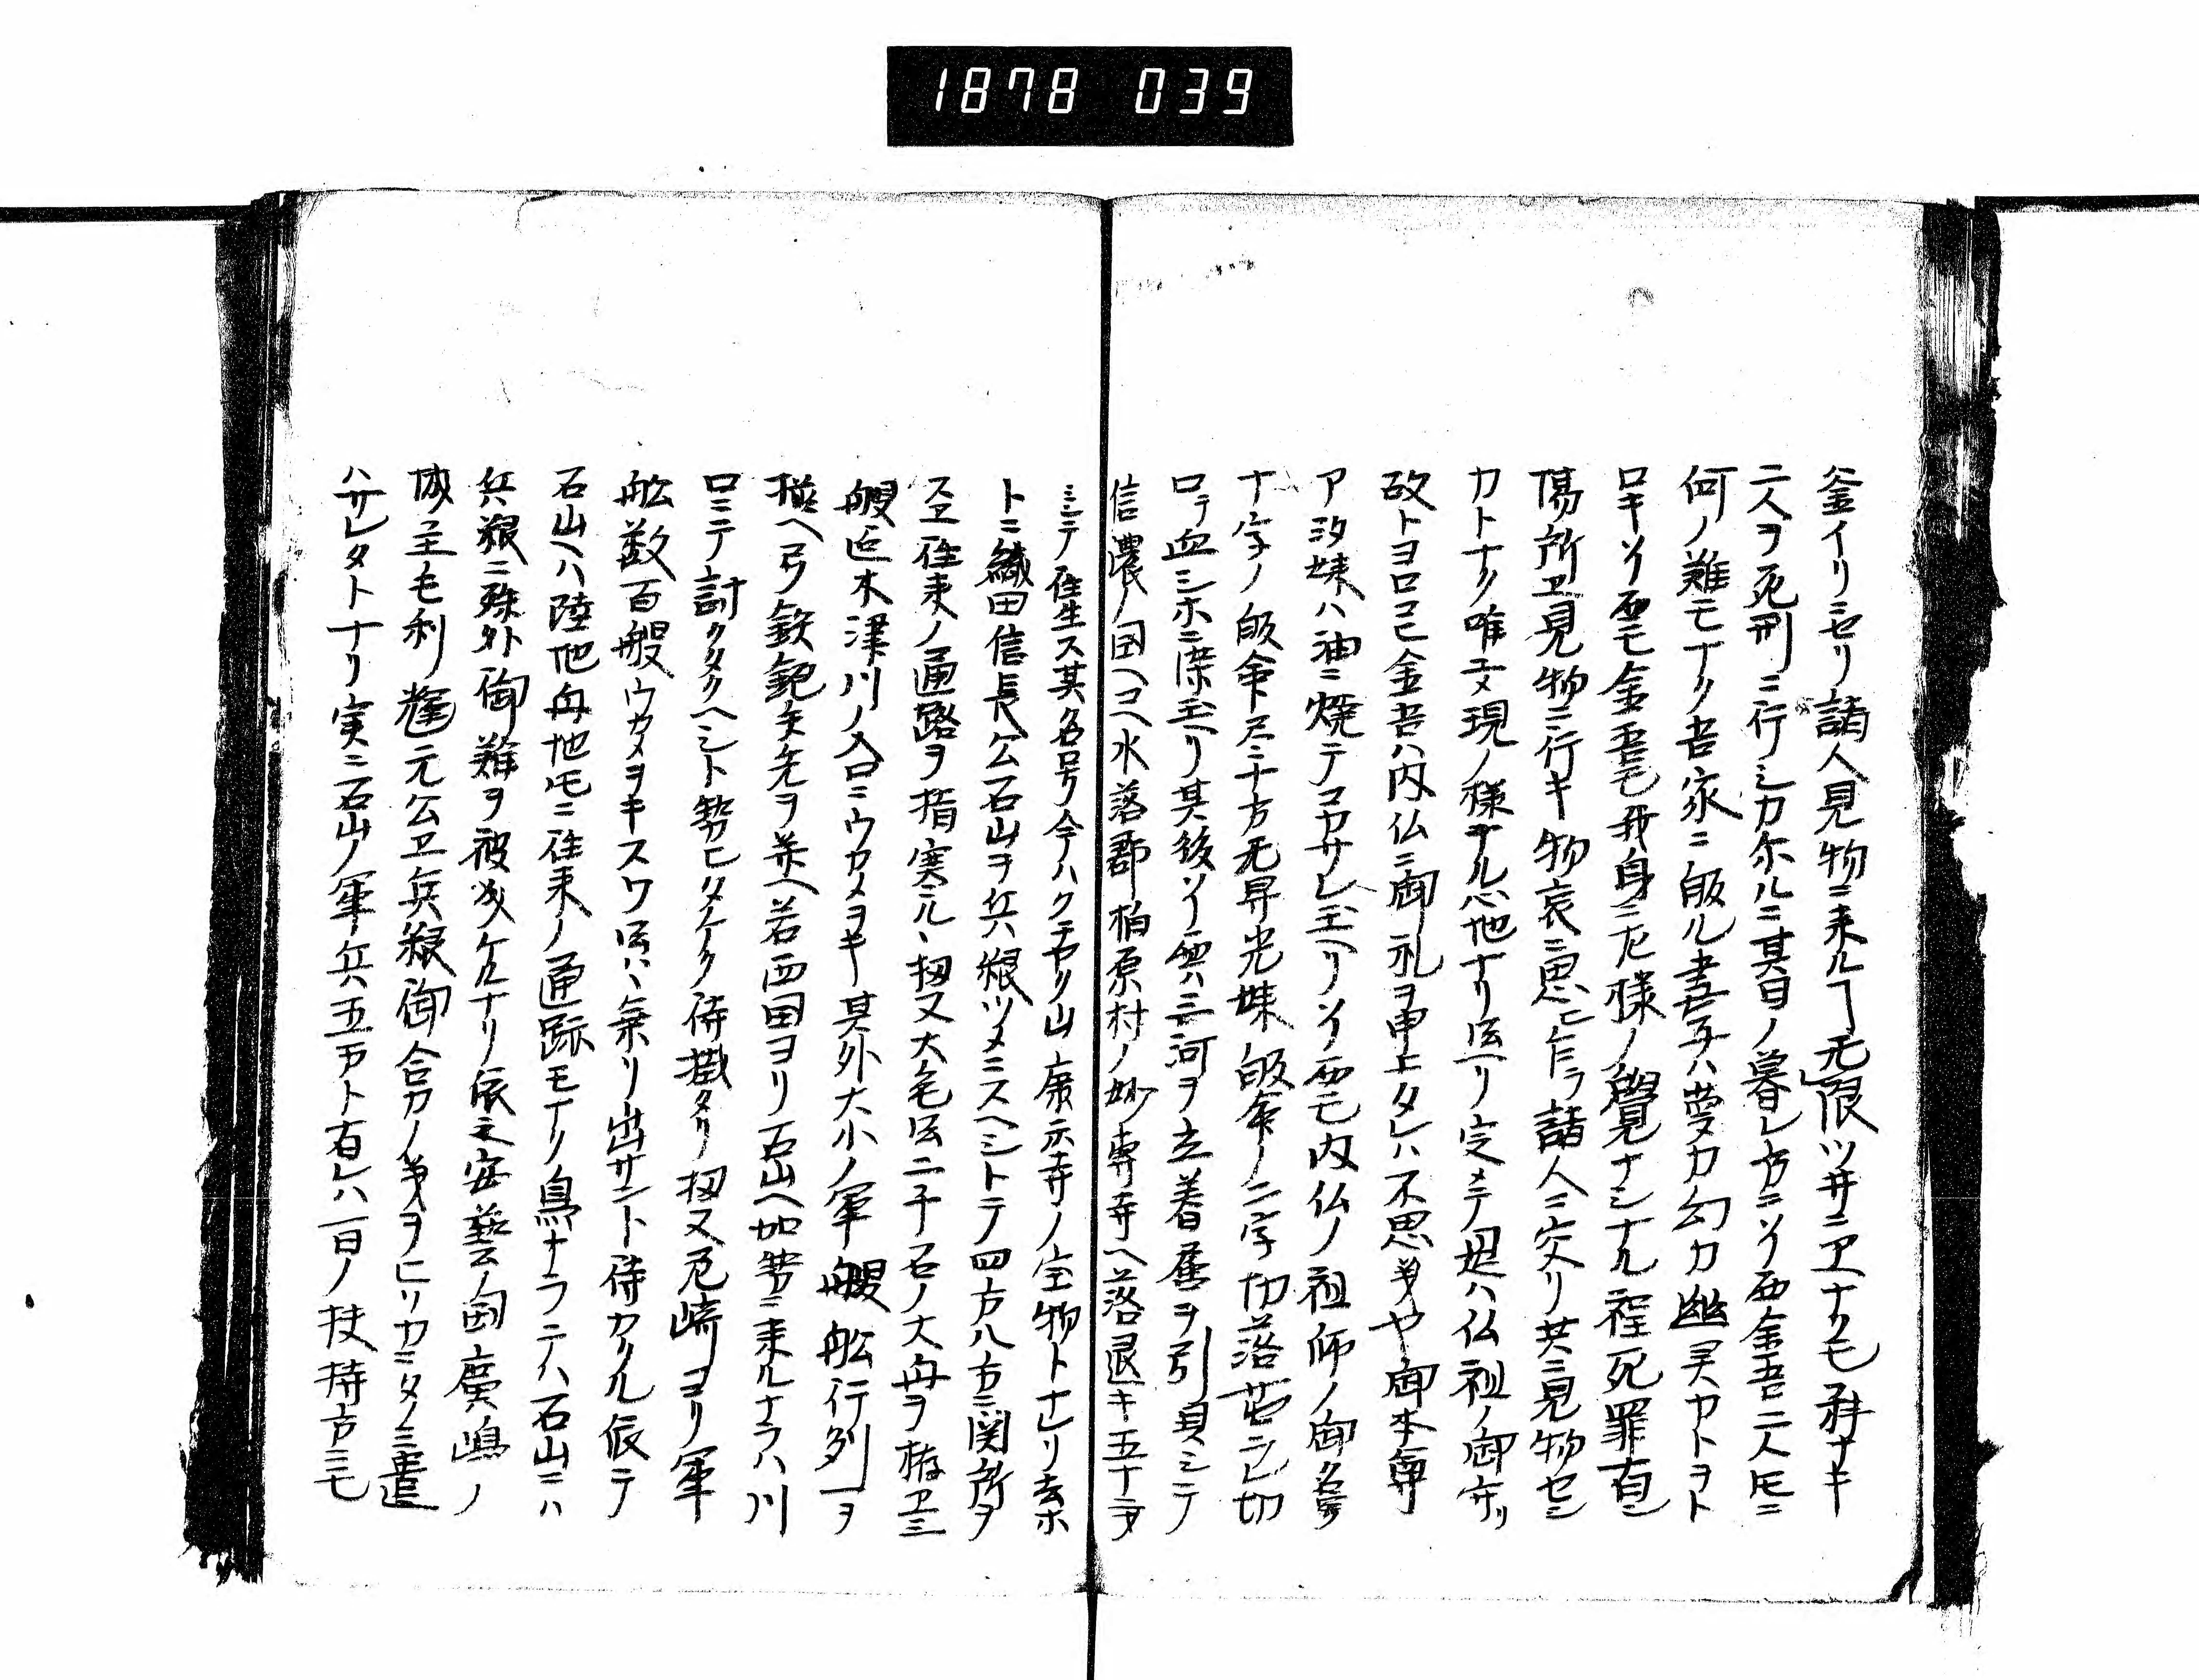 1878 039
釜イリニセリ諸人見物ニ来ルヿ无限ツ井ニヱナクモ科ナキ
二人ヲ死刑ニ行シカ尓ルニ其日ノ暮レ方ニソイ西金吾二人𪜈ニ
何ノ難モナク吾家ニ皈ル妻子ハ夢カ幻カ幽灵カトヲト
ロキソイ西モ金吾モ我身ニ左様ノ覺ナシナル程死罪有シ
塲所ヱ見物ニ行キ物哀ニ思ヒ乍ラ諸人ニ交リ共ニ見物セシ
カトナク唯夢現ノ様ナル心地ナリ云リ定メテ是ハ仏祖ノ御守リ
故トヨロコヒ金吾ハ内仏ニ御礼ヲ申上タレハ不思議や御本尊
ア汐妹ハ油ニ焼テコカサレ玉ヘリソイ西モ内仏ノ祖師ノ御名号
十字ノ皈命尽十方无㝵光妹皈命ノ二字切落サレ切
口ヨリ血シホニ染玉ヘリ其後ソイ西ハ三河ヲ立着舊ヲ引具シテ
信濃ノ国ヘコヘ水落郡柏原村ノ妙専寺ヘ落退キ五十二才
ニシテ往生ス其名号今ハクニヤリ山康示寺ノ宝物トナレリ去ホ
トニ織田信長公石山ヲ兵粮ツメニスヘシトテ四方八方ニ関所ヲ
スヱ往来ノ通路ヲ指塞ミル扨又大毛云二千石ノ大舟ヲ拵ヱ三
艘迄木津川ノ入口ニウカメヲキ其外大小ノ軍艘舩行列ヲ
搆ヘ弓鉄鉋矢先ヲ並ヘ若西国ヨリ石山ヘ加勢ニ来ルナラハ川
口ニテ討クタクヘシト勢ヒタケク待掛タリ扨又尼崎ヨリ軍
舩数百艘ウカメヲキスワ云ハ乗リ出サント待カケル依テ
石山ヘハ陸地舟地𪜈ニ往来ノ通跡モナク鳥ナラテハ石山ニハ
兵粮ニ殊外御難ヲ被成ケルナリ依之安藝ノ国廣嶋ノ
城主毛利輝元公ヱ兵粮御合力ノ義ヲヒリカニタノミ遣
ハサレタトナリ実ニ石山ノ軍兵五万ト有レハ一日ノ扶持方ニモ